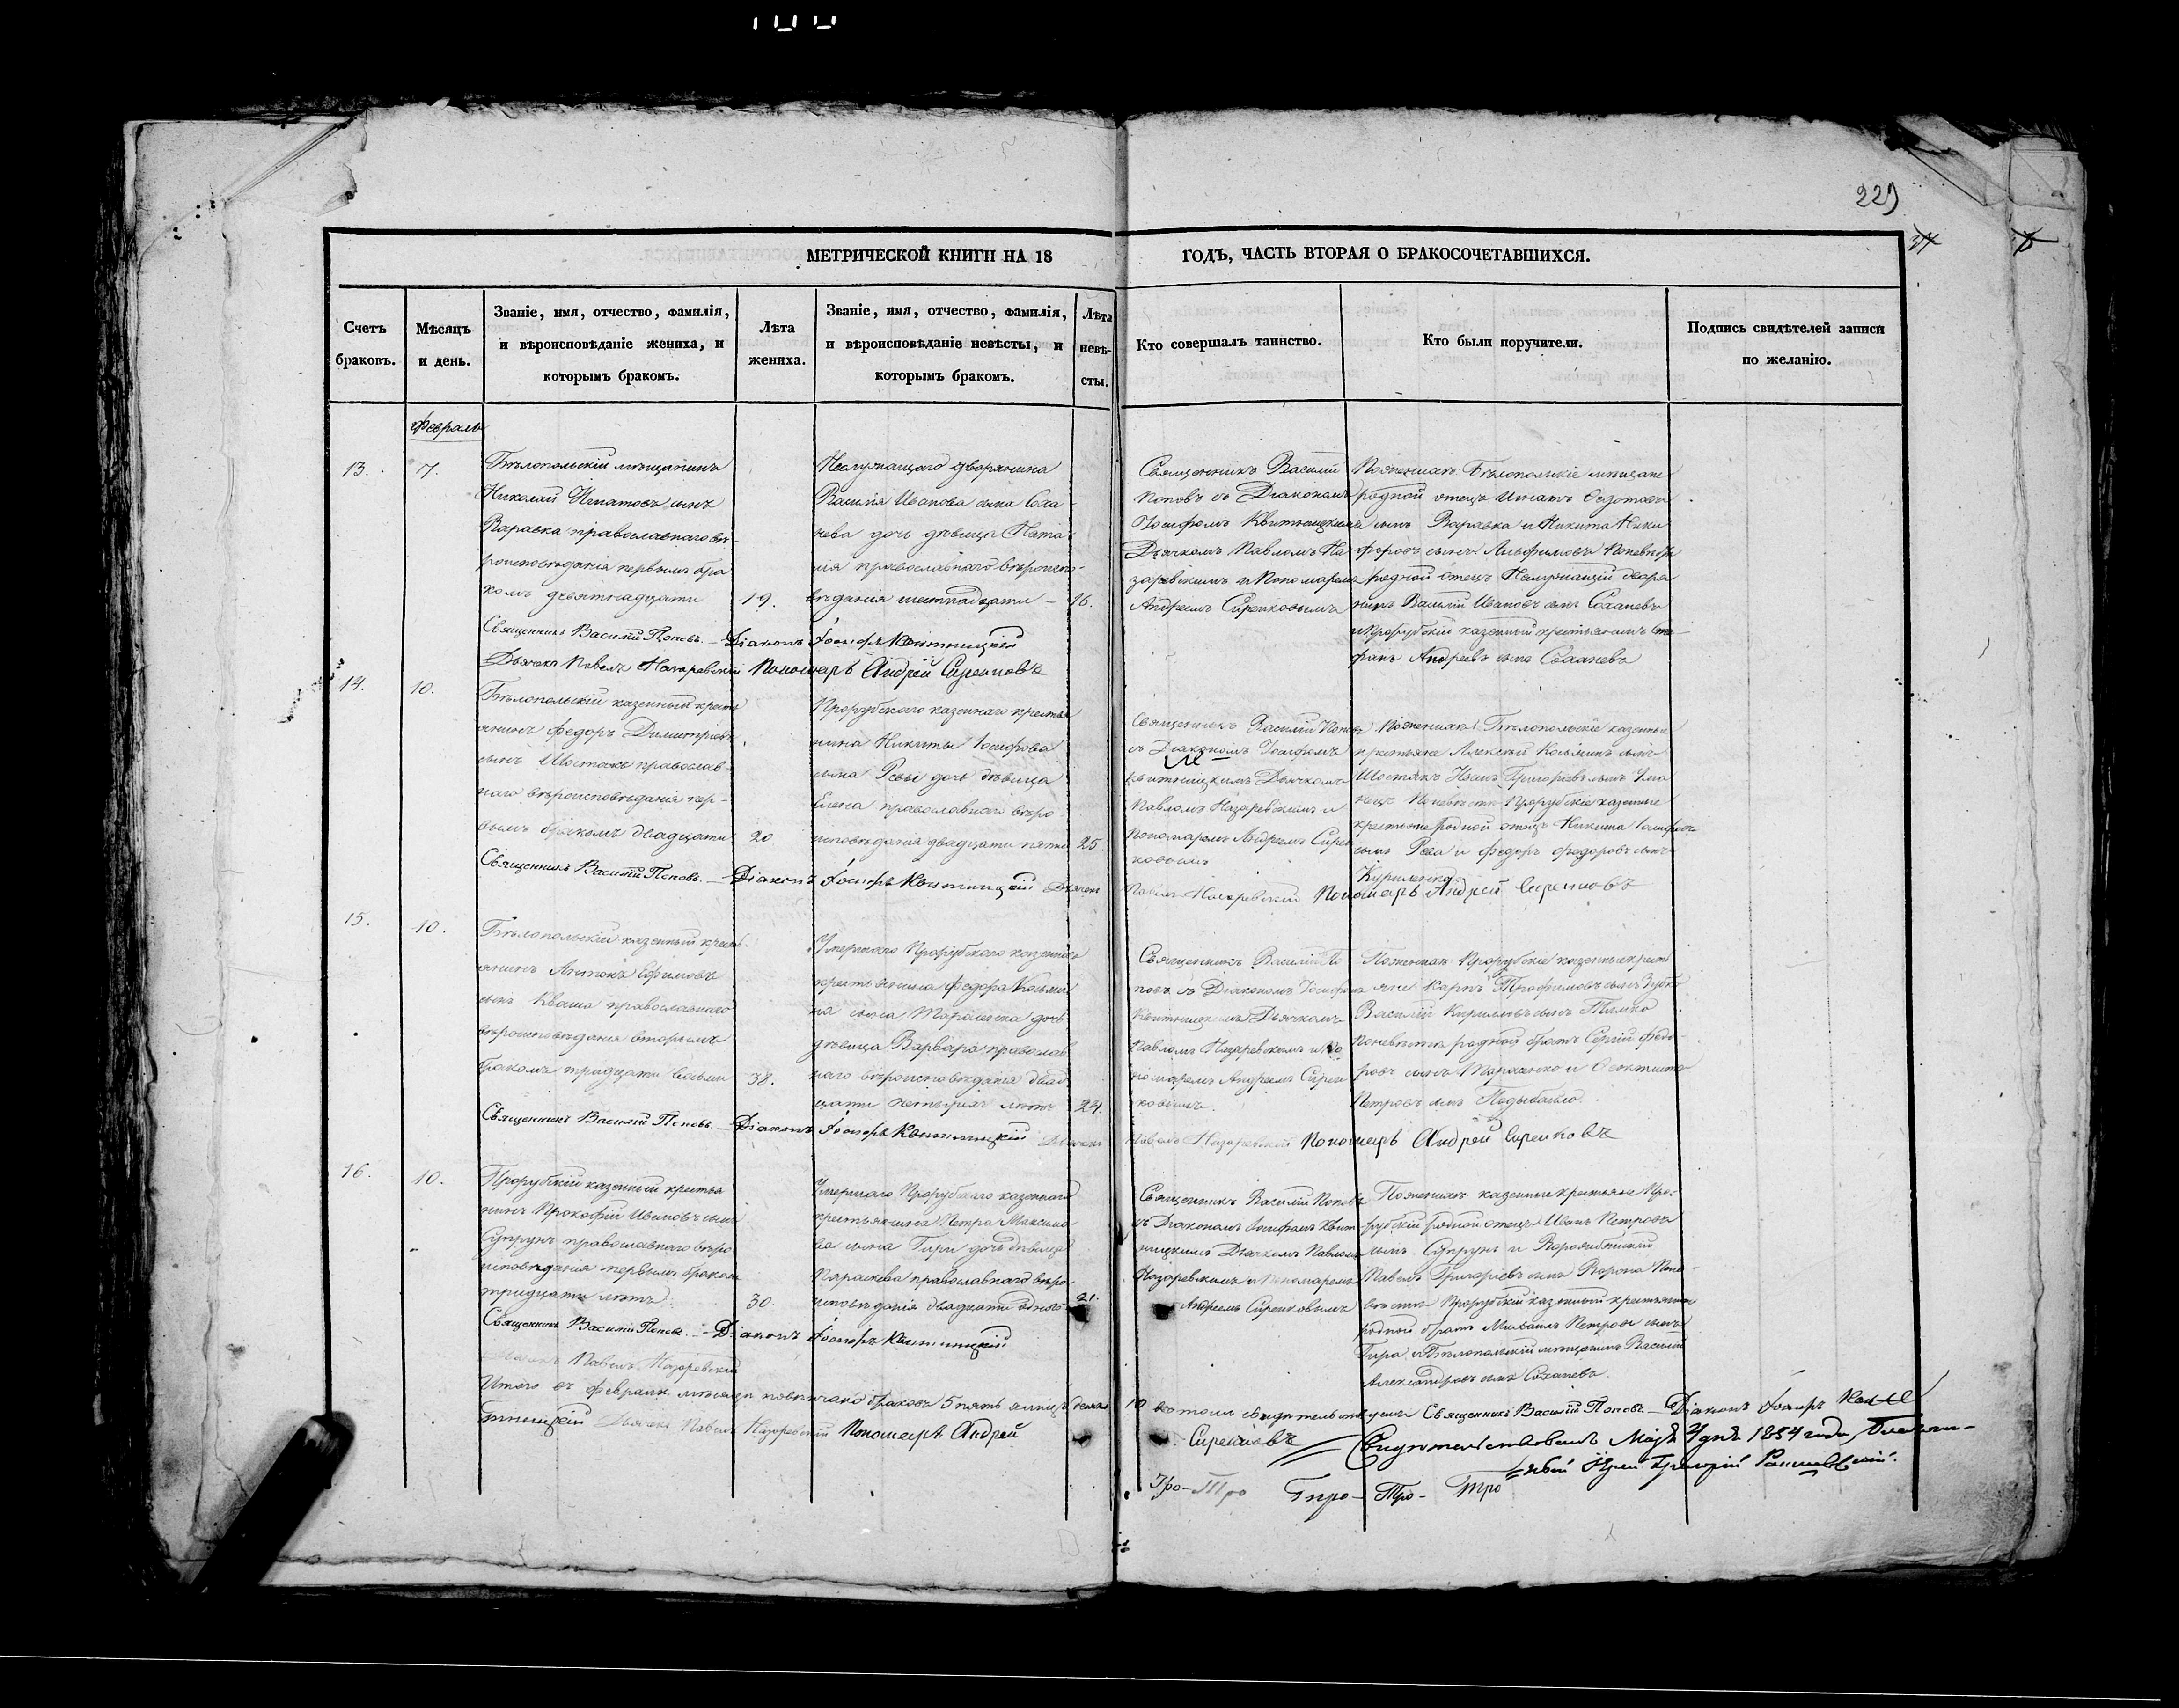 229
МЕТРИЧЕСКОЙ КНИГИ НА 18 ГОДЪ, ЧАСТЬ ВТОРАЯ О БРАКОСОЧЕТАВШИХСЯ.
Счетъ
браковъ.
Мѣсяцъ
и день.
Званіе, имя, отчество, фамилія,
и вѣроисповѣданіе жениха, и
которымъ бракомъ.
Лѣта
жениха.
Званіе, имя, отчество, фамилія,
и вѣроисповѣданіе невѣсты, и
которымъ бракомъ.
Лѣта
невѣ-
сты.
Кто совершалъ таинство.
Кто были поручители.
Подпись свидѣтелей записи
по желанію.
Февраль
13.
7.
Бѣлопольскій мѣщанинъ
Николай Игнатовъ сынъ
Варавка православнаго вѣ-
роисповѣданія первымъ бра
комъ девятнадцати
19.
Неслужащаго дворянина
Василія Иванова сына Соха-
нева дочь дѣвица
православнаго вѣроиспо-
вѣданія шестнадцати
16.
Священникъ Василій
Поповъ съ Діакономъ
Іосифомъ Квитницкимъ
Дьячкомъ Павломъ На
заревскимъ и Пономаремъ
Андреемъ Сиренковымъ
Пожениха: Бѣлопольскіе мѣщане
родной отецъ Игнатъ Федотовъ
сынъ Варавка и Никита Ники
форовъ сынъ Поневѣстѣ
родной отецъ Неслужащій дворя
нинъ Василій Ивановъ сынъ Соханевъ
и Прорубскій казенный крестьянинъ Сте
фанъ Андреевъ сынъ Соханевъ
Священникъ Василій Поповъ. Діаконъ Іосифъ Квитницкій
Дьячекъ Павелъ Назаревскій Пономарь Андрей Сиренковъ
14.
10.
Бѣлопольскій казенный кресть
янинъ Федоръ Димитріевъ
сынъ Шостакъ православ-
наго вѣроисповѣданія пер-
вымъ бракомъ двадцати
20
Прорубскаго казеннаго крестья
нина Никиты Іосифова
сына дочь дѣвица
Елена православнаго вѣро
исповѣданія двадцати пяти
25.
Священникъ Василій Поповъ
съ Діакономъ Іосифомъ
Квитницкимъ Дьячкомъ
Павломъ Назаревскимъ и
Пономаремъ Андреемъ Сирен
ковымъ
Пожениха: Бѣлопольскіе казенные
крестьяне Алексій Косминъ сынъ
Шостакъ Иванъ Григоріевъ сынъ
Поневѣстѣ Прорубскіе казенные
крестьяне родной отецъ Никита Іосифовъ
сынъ и Федоръ Федоровъ сынъ
Куриленко
Священникъ Василій Поповъ. Діаконъ Іосифъ Квитницкій Дьячекъ
Павелъ Назаревскій Пономарь Андрей Сиренковъ
15.
10.
Бѣлопольскій казенный кресть-
янинъ Антонъ Ефимовъ
сынъ Кваша православнаго
вѣроисповѣданія вторымъ
бракомъ тридцати восьми
38.
Умершаго Прорубскаго казеннаго
крестьянина Федора Косьми
на сына дочь
дѣвица Варвара православ
наго вѣроисповѣданія двад
цати четырехъ лѣтъ
24.
Священникъ Василій По
повъ съ Діакономъ Іосифомъ
Квитницкимъ Дьячкомъ
Павломъ Назаревскимъ и По
номаремъ Андреемъ Сирен
ковымъ.
Пожениха: Прорубскіе казенные кресть
яне Карпъ Трофимовъ сынъ Зубко
Василій Кириловъ сынъ
Поневѣстѣ родной братъ Сергій Федо-
ровъ сынъ и
Петровъ сынъ
Священникъ Василій Поповъ. Діаконъ Іосифъ Квитницкій Дьячекъ
Павелъ Назаревскій Пономарь Андрей Сиренковъ
16.
10.
Прорубскій казенный крестья
нинъ Прокофій Ивановъ сынъ
Супрунъ православнаго вѣро
исповѣданія первымъ бракомъ
тридцати лѣтъ
30.
Умершаго Прорубскаго казеннаго
крестьянина Петра Максимо
ва сына Гири дочь дѣвица
Параскева православнаго вѣро-
исповѣданія двадцати одного
21.
Священникъ Василій Поповъ
съ Діакономъ Іосифомъ Квит
ницкимъ Дьячкомъ Павломъ
Назаревскимъ и Пономаремъ
Андреемъ Сиренковымъ
Пожениха: казенные крестьяне Про-
рубскій родной отецъ Иванъ Петровъ
сынъ Супрунъ и
Павелъ Григоріевъ сынъ Ворона Поне-
вѣстѣ Прорубскій казенный крестьянинъ
родной братъ Михаилъ Петровъ сынъ
Гира и Бѣлопольскій мѣщанинъ Василій
Александровъ сынъ Соханевъ.
Священникъ Василій Поповъ. Діаконъ Іосифъ Квитницкій
Дьячекъ Павелъ Назаревскій
Итого въ февралѣ мѣсяцѣ повѣнчано браковъ 5 пять а лицъ десять 10 въ томъ свидѣтельствуемъ Священникъ Василій Поповъ Діаконъ Іосифъ Кви
тницкій Дьячекъ Павелъ Назаревскій Пономарь Андрей Сиренковъ
Свидѣтельствовалъ Маія 4 дня 1854 года Благочин-
ный Іерей Григорій
Про- Тро Гпро- Тро- Тро